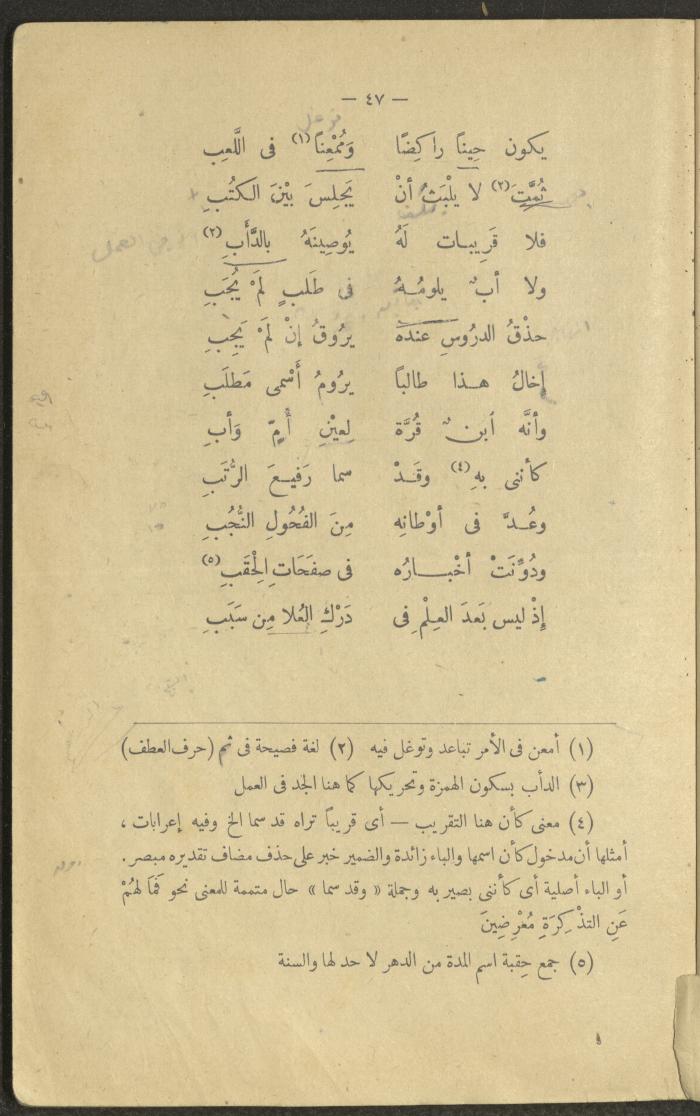 — ٤٧ —
يكون حِيناً راكِضًا وَمُمْعِناً (١) فى اللَّعِب
ثُمَّتَ (٢) لا يلْبَثُ أنْ يَجلِسَ بيْنَ الكتُبِ
فلا قَرِيبات لَهُ يُوصِينَهُ بالدَّأَبِ (٢)
ولا أبٌ يلومُهُ فى طَلَبٍ لَمْ يُجَبِ
حذْقُ الدرُوسِ عندَه يرُوقُ إنْ لَمْ يَجِبِ
إخالُ هذا طالباً يرُومُ أَسْمى مَطلَبِ
وأنَّه ابنٌ قُرَّة لِعيْنِ أُمٍّ وَأبِ
كأننى بهِ (٤) وقَدْ سما رَفيعَ الرُّتَبِ
وعُدَّ فى أوْطانِه مِنَ الفُحُولِ النُّجُبِ
ودُوِّنَتْ أخْبارُه فى صفَحَاتِ الْحِقَبِ (٥)
إذْ ليس بَعدَ العِلْمِ فِى دَرْكِ العُلا مِن سَبَبِ
(١) أمعن فى الأمر تباعد وتوغل فيه (٢) لغة فصيحة فى ثم (حرف العطف)
(٣) الدأب بسكون الهمزة وتحريكها كما هنا الجد فى العمل
(٤) معنى كأن هنا التقريب — أى قريباً تراه قد سما الخ وفيه إعرابات ،
أمثلها أن مدخول كأن اسمها والباء زائدة والضمير خبر على حذف مضاف تقديره مبصر .
أو الباء أصلية أى كأننى بصير به وجملة « وقد سما » حال متممة للمعنى نحو فَمَا لهُمْ
عَنِ التذْكِرَةِ مُعْرِضِينَ
(٥) جمع حِقبة اسم المدة من الدهر لا حد لها والسنة